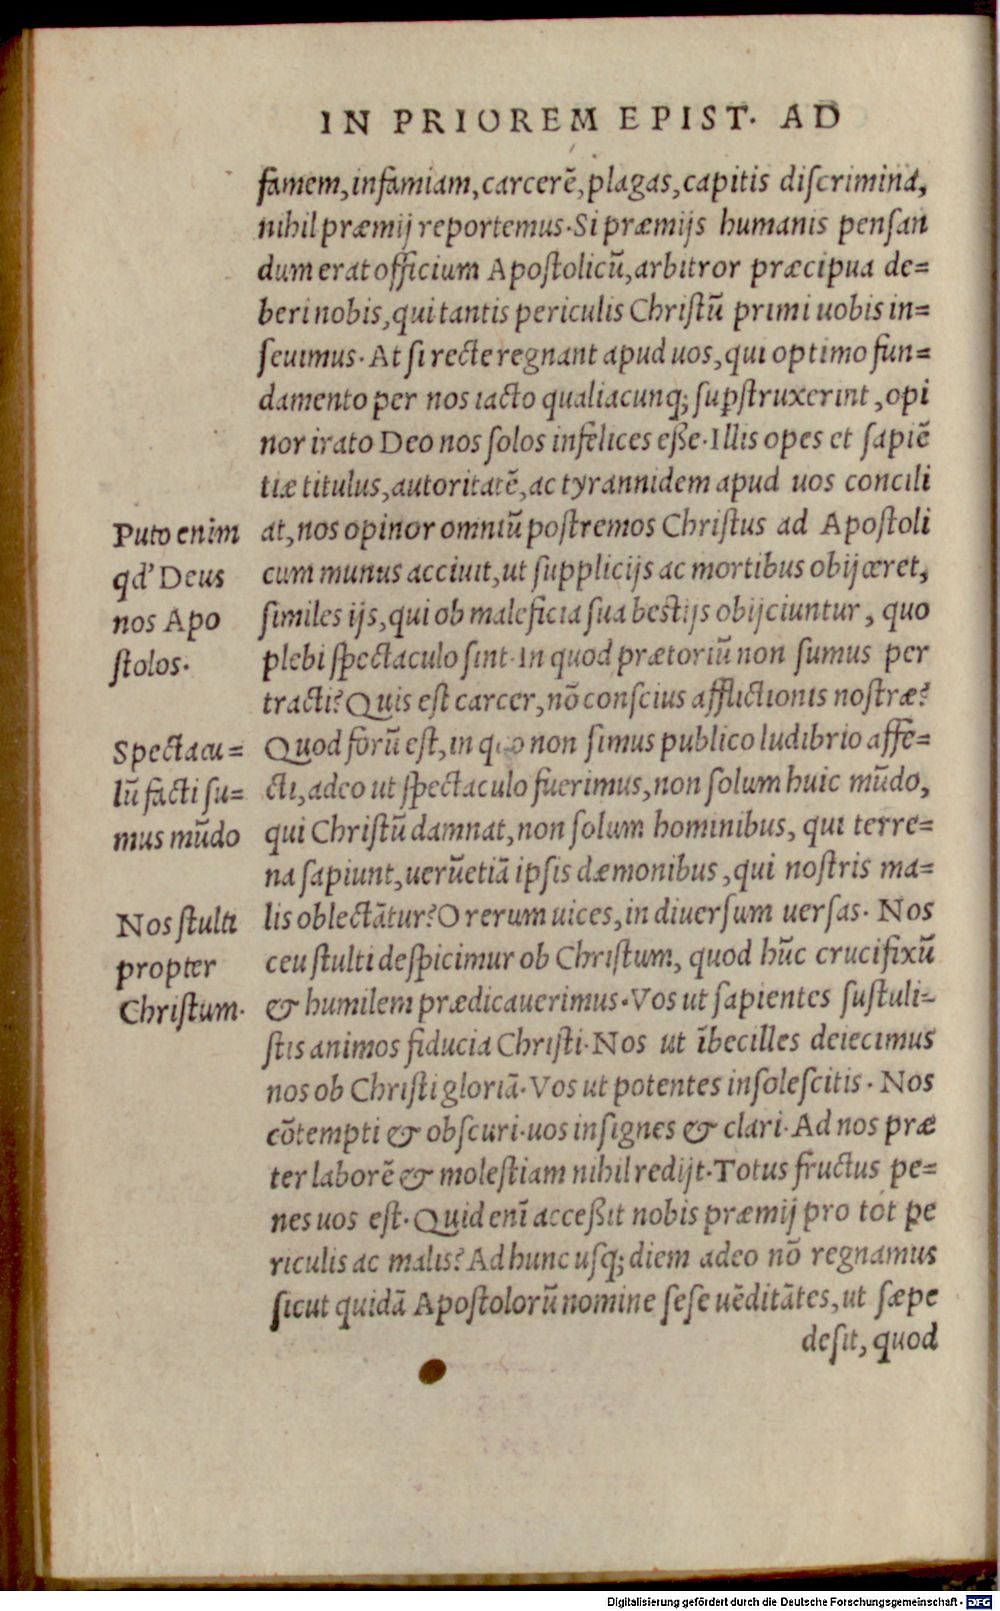 IN PRIOREM EPIST. AD
famem, infamiam, carcerẽ, plagas, capitis diſcrimina,
nihil præmij reportemus. Si præmijs humanis penſan
dum erat officium Apoſtolicũ, arbitror præcipua de=
beri nobis, qui tantis periculis Chriſtũ primi uobis in=
ſeuimus. At ſi recte regnant apud uos, qui optimo fun=
damento per nos iacto qualiacunq; ſupſtruxerint, opi
nor irato Deo nos ſolos infelices eße. Illis opes et ſapiẽ
tiæ titulus, autoritatẽ, ac tyrannidem apud uos concili
at, nos opinor omniũ poſtremos Chriſtus ad Apoſtoli
cum munus acciuit, ut ſupplicijs ac mortibus obijceret,
ſimiles ijs, qui ob maleficia ſua beſtijs obijciuntur, quo
plebi ſpectaculo ſint. In quod prætoriũ non ſumus per
tracti? Quis eſt carcer, nõ conſcius afflictionis noſtræ?
Quod forũ eſt, in quo non ſimus publico ludibrio affe=
cti, adeo ut ſpectaculo fuerimus, non ſolum huic mũdo,
qui Chriſtũ damnat, non ſolum hominibus, qui terre=
na ſapiunt, uerũetiã ipſis dæmonibus, qui noſtris ma=
lis oblectãtur? O rerum uices, in diuerſum uerſas. Nos
ceu ſtulti deſpicimur ob Chriſtum, quod hũc crucifixũ
& humilem prædicauerimus. Vos ut ſapientes ſuſtuli=
ſtis animos fiducia Chriſti. Nos ut ĩbecilles deiecimus
nos ob Chriſti gloriã. Vos ut potentes inſoleſcitis. Nos
cõtempti & obſcuri. uos inſignes & clari. Ad nos præ
ter laborẽ & moleſtiam nihil redijt. Totus fructus pe=
nes uos eſt. Quid enĩ acceßit nobis præmij pro tot pe
riculis ac malis? Ad hunc uſq; diem adeo nõ regnamus
ſicut quidã Apoſtolorũ nomine ſeſe uẽditãtes, ut ſæpe
deſit, quod
Puto enim
qd' Deus
nos Apo
ſtolos.
Spectacu=
lũ facti ſu=
mus mũdo
Nos ſtulti
propter
Chriſtum.
Digitalisierung gefördert durch die Deutsche Forschungsgemeinschaft - DFG